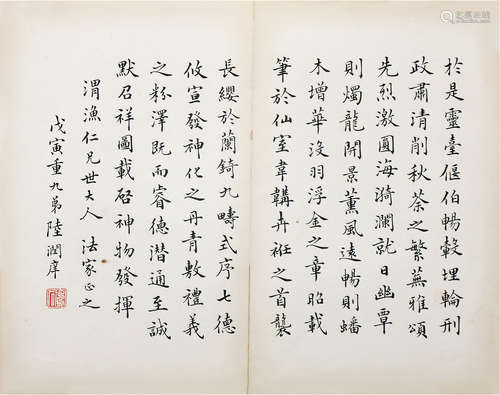 於是靈臺偃伯暢轂埋輪刑
政肅清削秋荼之繁蕪雅頌
先烈激圓海漪瀾就日幽覃
則燭龍開景薰風遠暢則蟠
木增華沒羽浮金之章昭載
筆於仙室韋韝卉袵之首襲
長纓於蘭錡九疇式序七德
攸宣發神化之丹青敷禮義
之粉澤既而睿德潛通至誠
默召祥圖載啓神物發揮
渭漁仁兄世大人 法家正之
戊寅重九弟陸潤庠